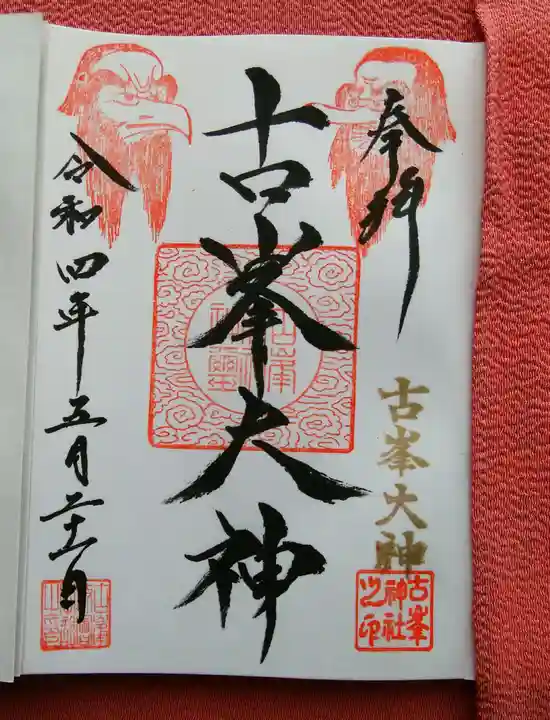 奉拝
古峯大神
古峯
神社
之印
古峯大神
令和四年五月二十一日